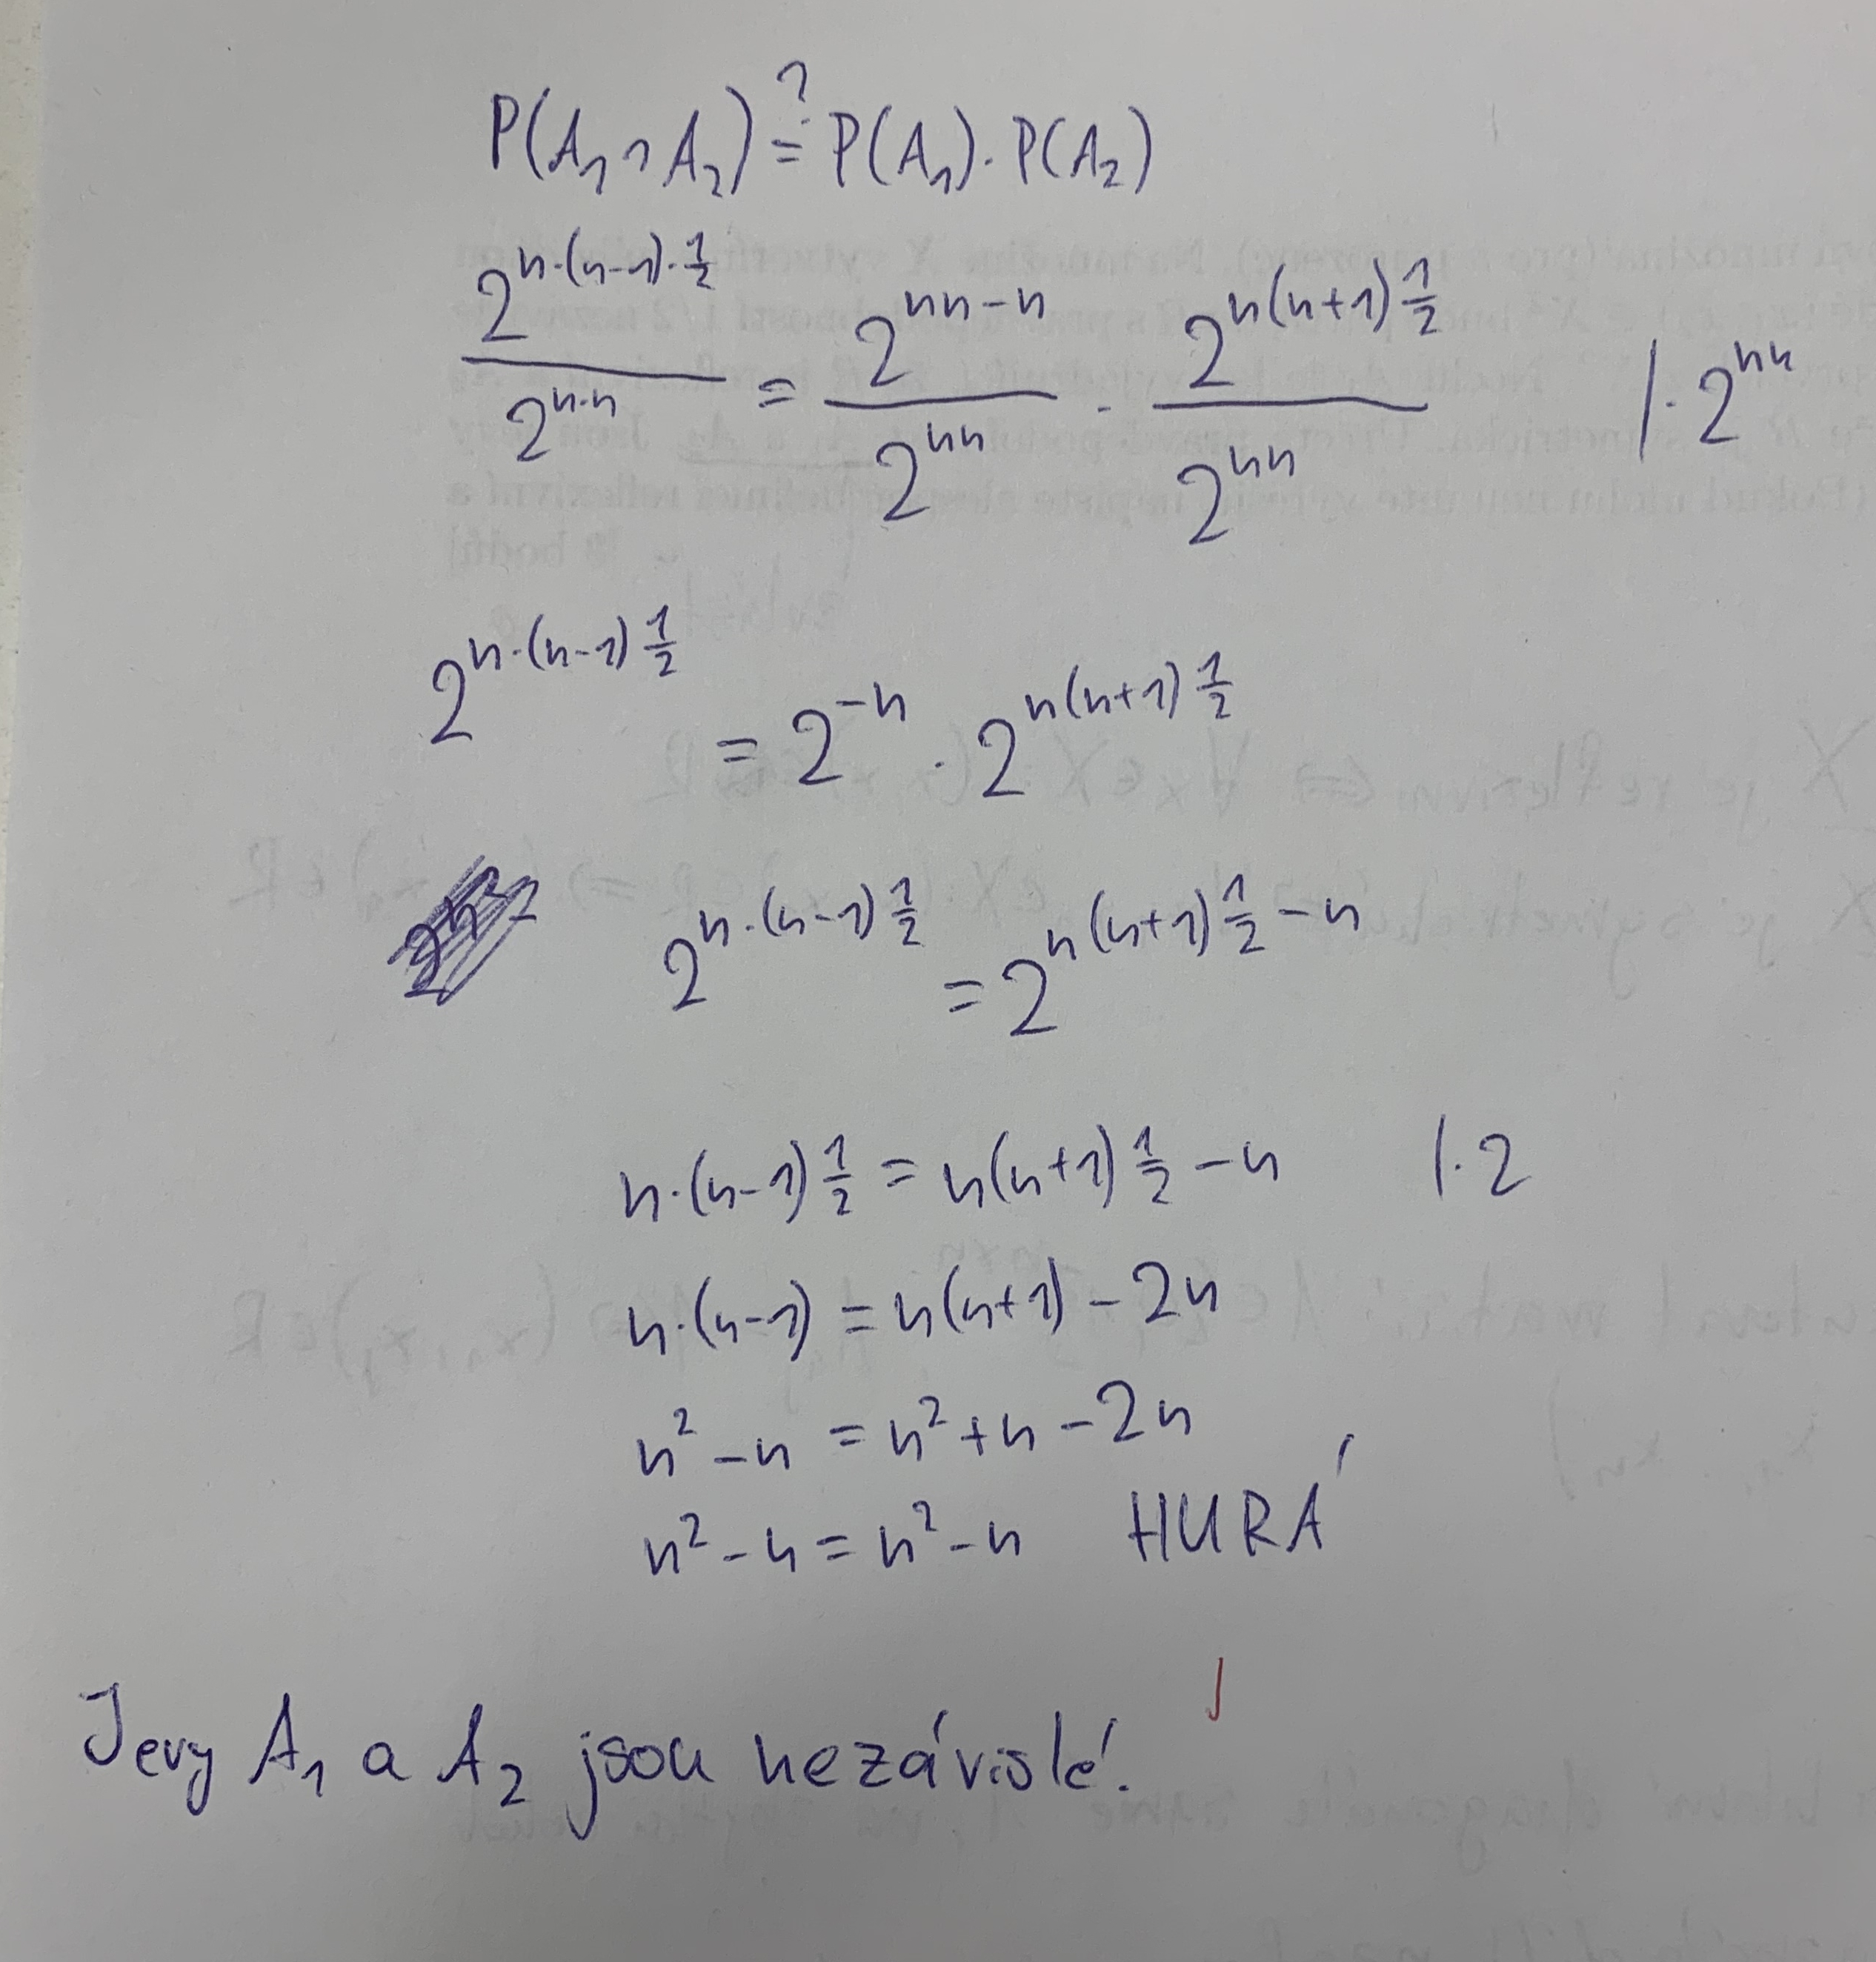 P(A₁ ∩ A₂) ≟ P(A₁) · P(A₂)
2^(n·(n-1)·1/2) / 2^(n·n) = 2^(nn-n) / 2^(nn) · 2^(n(n+1)1/2) / 2^(nn) | · 2^(nn)
2^(n·(n-1)1/2) = 2^(-n) · 2^(n(n+1)1/2)
2^(n·(n-1)1/2) = 2^(n(n+1)1/2 - n)
n·(n-1)1/2 = n(n+1)1/2 - n | · 2
n·(n-1) = n(n+1) - 2n
n² - n = n² + n - 2n
n² - n = n² - n HURÁ
Jevy A₁ a A₂ jsou nezávislé.